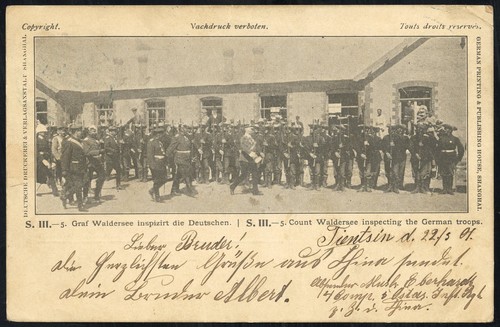 Copyright.
Nachdruck verboten.
Touts droits reservés.
DEUTSCHE DRUCKEREI & VERLAGSANSTALT SHANGHAI.
GERMAN PRINTING & PUBLISHING HOUSE, SHANGHAI
S. III.—5. Graf Waldersee inspizirt die Deutschen. | S. III.—5. Count Waldersee inspecting the German troops.
Tientsin d. 22/3 01.
Lieber Bruder!
die herzlichsten Grüße aus China sendet
dein Bruder Albert.
Absender Musk. Eberhardt
4 Comp. 5 Ostas. Inft. Rgt
z. Z. d. China.